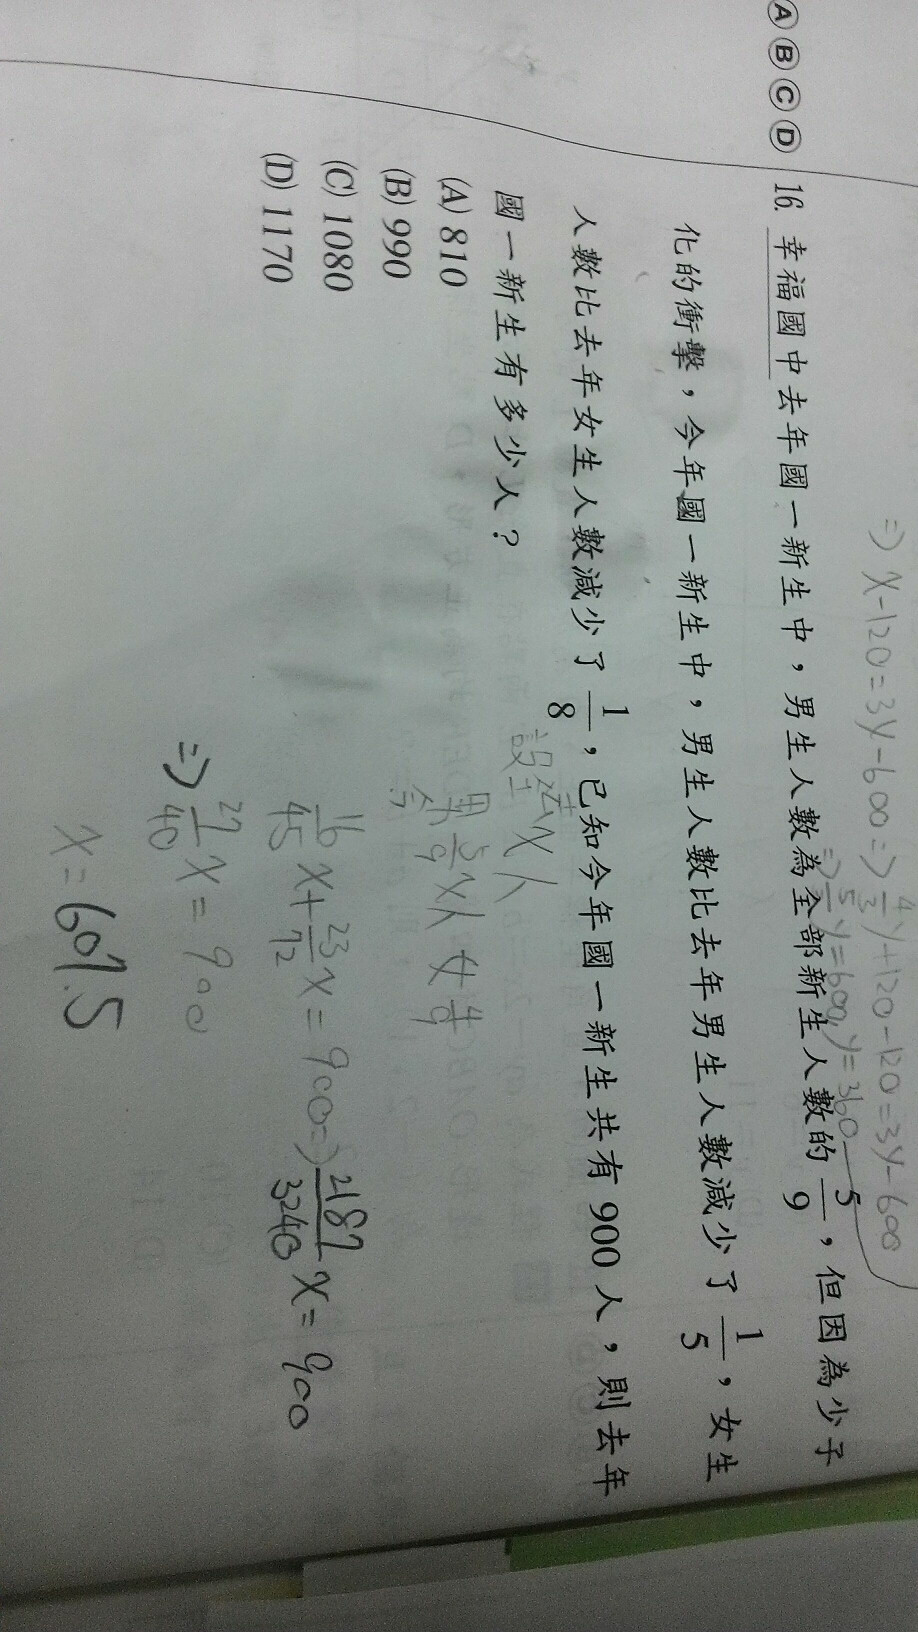 ⇒ x-120=3y-600 ⇒ 4/3 y+120-120=3y-600
⇒ 5/3 y=600, y=360
Ⓐ Ⓑ Ⓒ Ⓓ 16. 幸福國中去年國一新生中，男生人數為全部新生人數的 5/9，但因為少子
化的衝擊，今年國一新生中，男生人數比去年男生人數減少了 1/5，女生
人數比去年女生人數減少了 1/8，已知今年國一新生共有 900 人，則去年
國一新生有多少人？
(A) 810
(B) 990
(C) 1080
(D) 1170
設去x人
男 5/9 x人 女 4/9
今
16/45 x + 23/72 x = 900 ⇒ 2187/3240 x = 900
⇒ 27/40 x = 900
x = 607.5